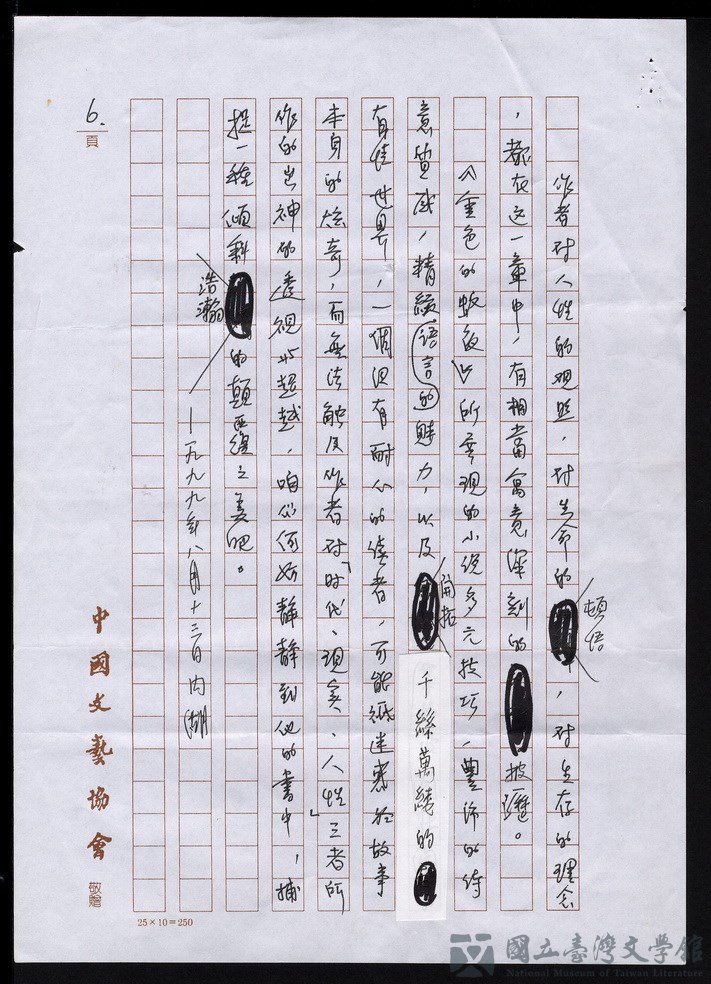 作者對人性的观照，对生命的頓悟，对生存的理念
，都在这一章中，有相當寓意深刻的披瀝。
《金色的蚊蚋》所呈現的小说多元技巧，豐沛的诗
意質感，精緻語言的魅力，以及開拓千絲萬縷的
有情世界，一個没有耐心的读者，可能祇迷惑於故事
本身的炫奇，而無法触及作者对「时代、現实、人性」三者所
作的出神的透視与超越，咱们何妨靜靜到他的書中，捕
捉一種傾斜浩瀚的顛覆之美吧。
—一九九九年八月十三日内湖
6.頁
中國文藝協會 敬贈
25×10=250
國立臺灣文學館
National Museum of Taiwan Literature